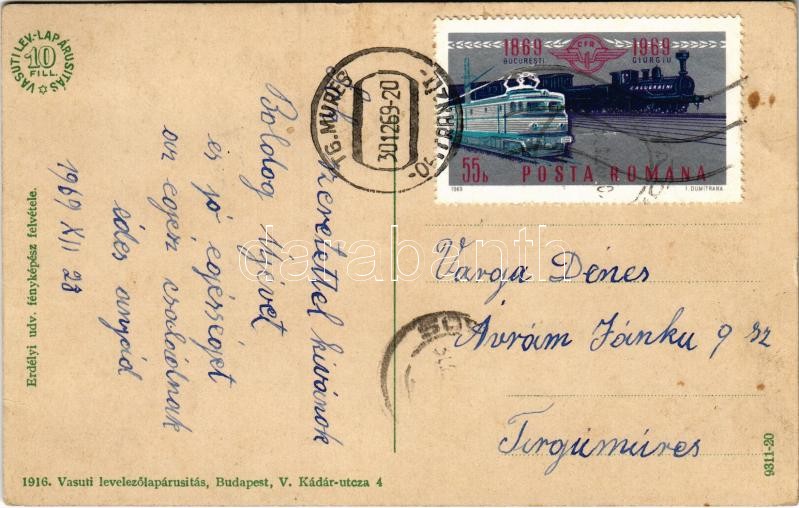 VASUTI LEV.-LAPÁRUSITÁS
10
FILL.
Szeretettel kivánok
Boldog Ujévet
és jó egésséget
az egész családnak
édes anyád
1969 XII 28
Erdélyi udv. fényképész felvétele.
1916. Vasuti levelezőlapárusitás, Budapest, V. Kádár-utcza 4
TG. MURES
301269-20
1869 CFR 1969
BUCUREȘTI GIURGIU
CALUGARENI
55b POSTA ROMANA
1969 I. DUMITRANA
darabanth
Varga Dénes
Avrám Jánku 9 sz
Tirgumures
9311-20